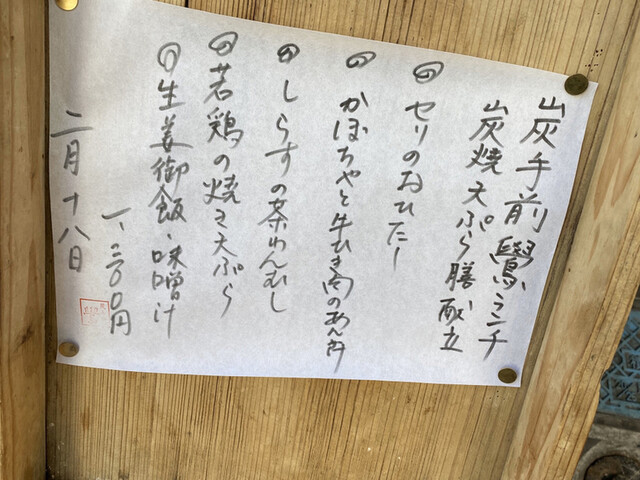 炭手前鷽ランチ
炭焼天ぷら膳献立
セリのおひたし
かぼちゃと牛ひき肉のあん丹
しらすの茶わんむし
若鶏の焼き天ぷら
生姜御飯・味噌汁
一、三〇〇円
二月十八日